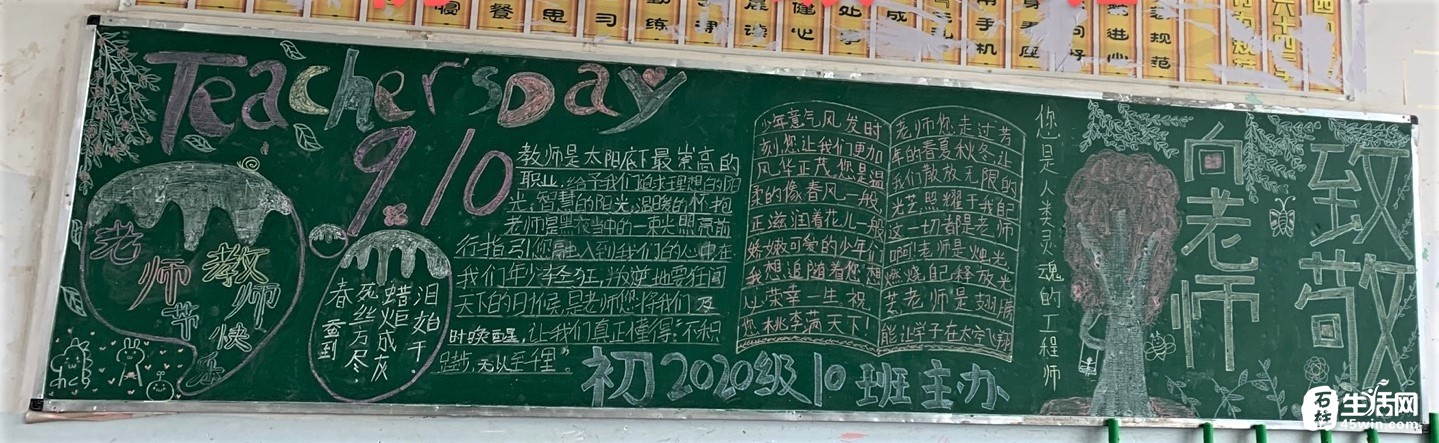 Teacher's Day
9.10
教师是太阳底下最崇高的
职业,给予我们追求理想的阳
光,智慧的阳光,温暖的怀抱
老师是黑夜当中的一束光照亮前
行指引您融入到我们的心中在
我们年少轻狂,叛逆地要任闯
天下的日候,是老师您将我们及
时唤醒,让我们真正懂得:"不积
跬步,无以至千里"
老师教师
节快乐
春蚕到
死丝方尽
蜡炬成灰
泪始干
少年意气风发时
刻,您让我们更加
风华正茂,您是温
柔的像春风一般
正滋润着花儿一般
娇嫩可爱的少年们
我想追随着您想
让荣幸一生,祝
您桃李满天下!
老师您走过芳
年的春夏秋冬让
我们散放无限的
光芒,照耀于我自己
这一切都是老师
啊!老师是烛光,
燃烧自己释放光
芒,老师是翅膀
能让学子在太空飞翔
初2020级10班主办
你是人类灵魂的工程师
向老师
致敬
石柱生活网
45win.com